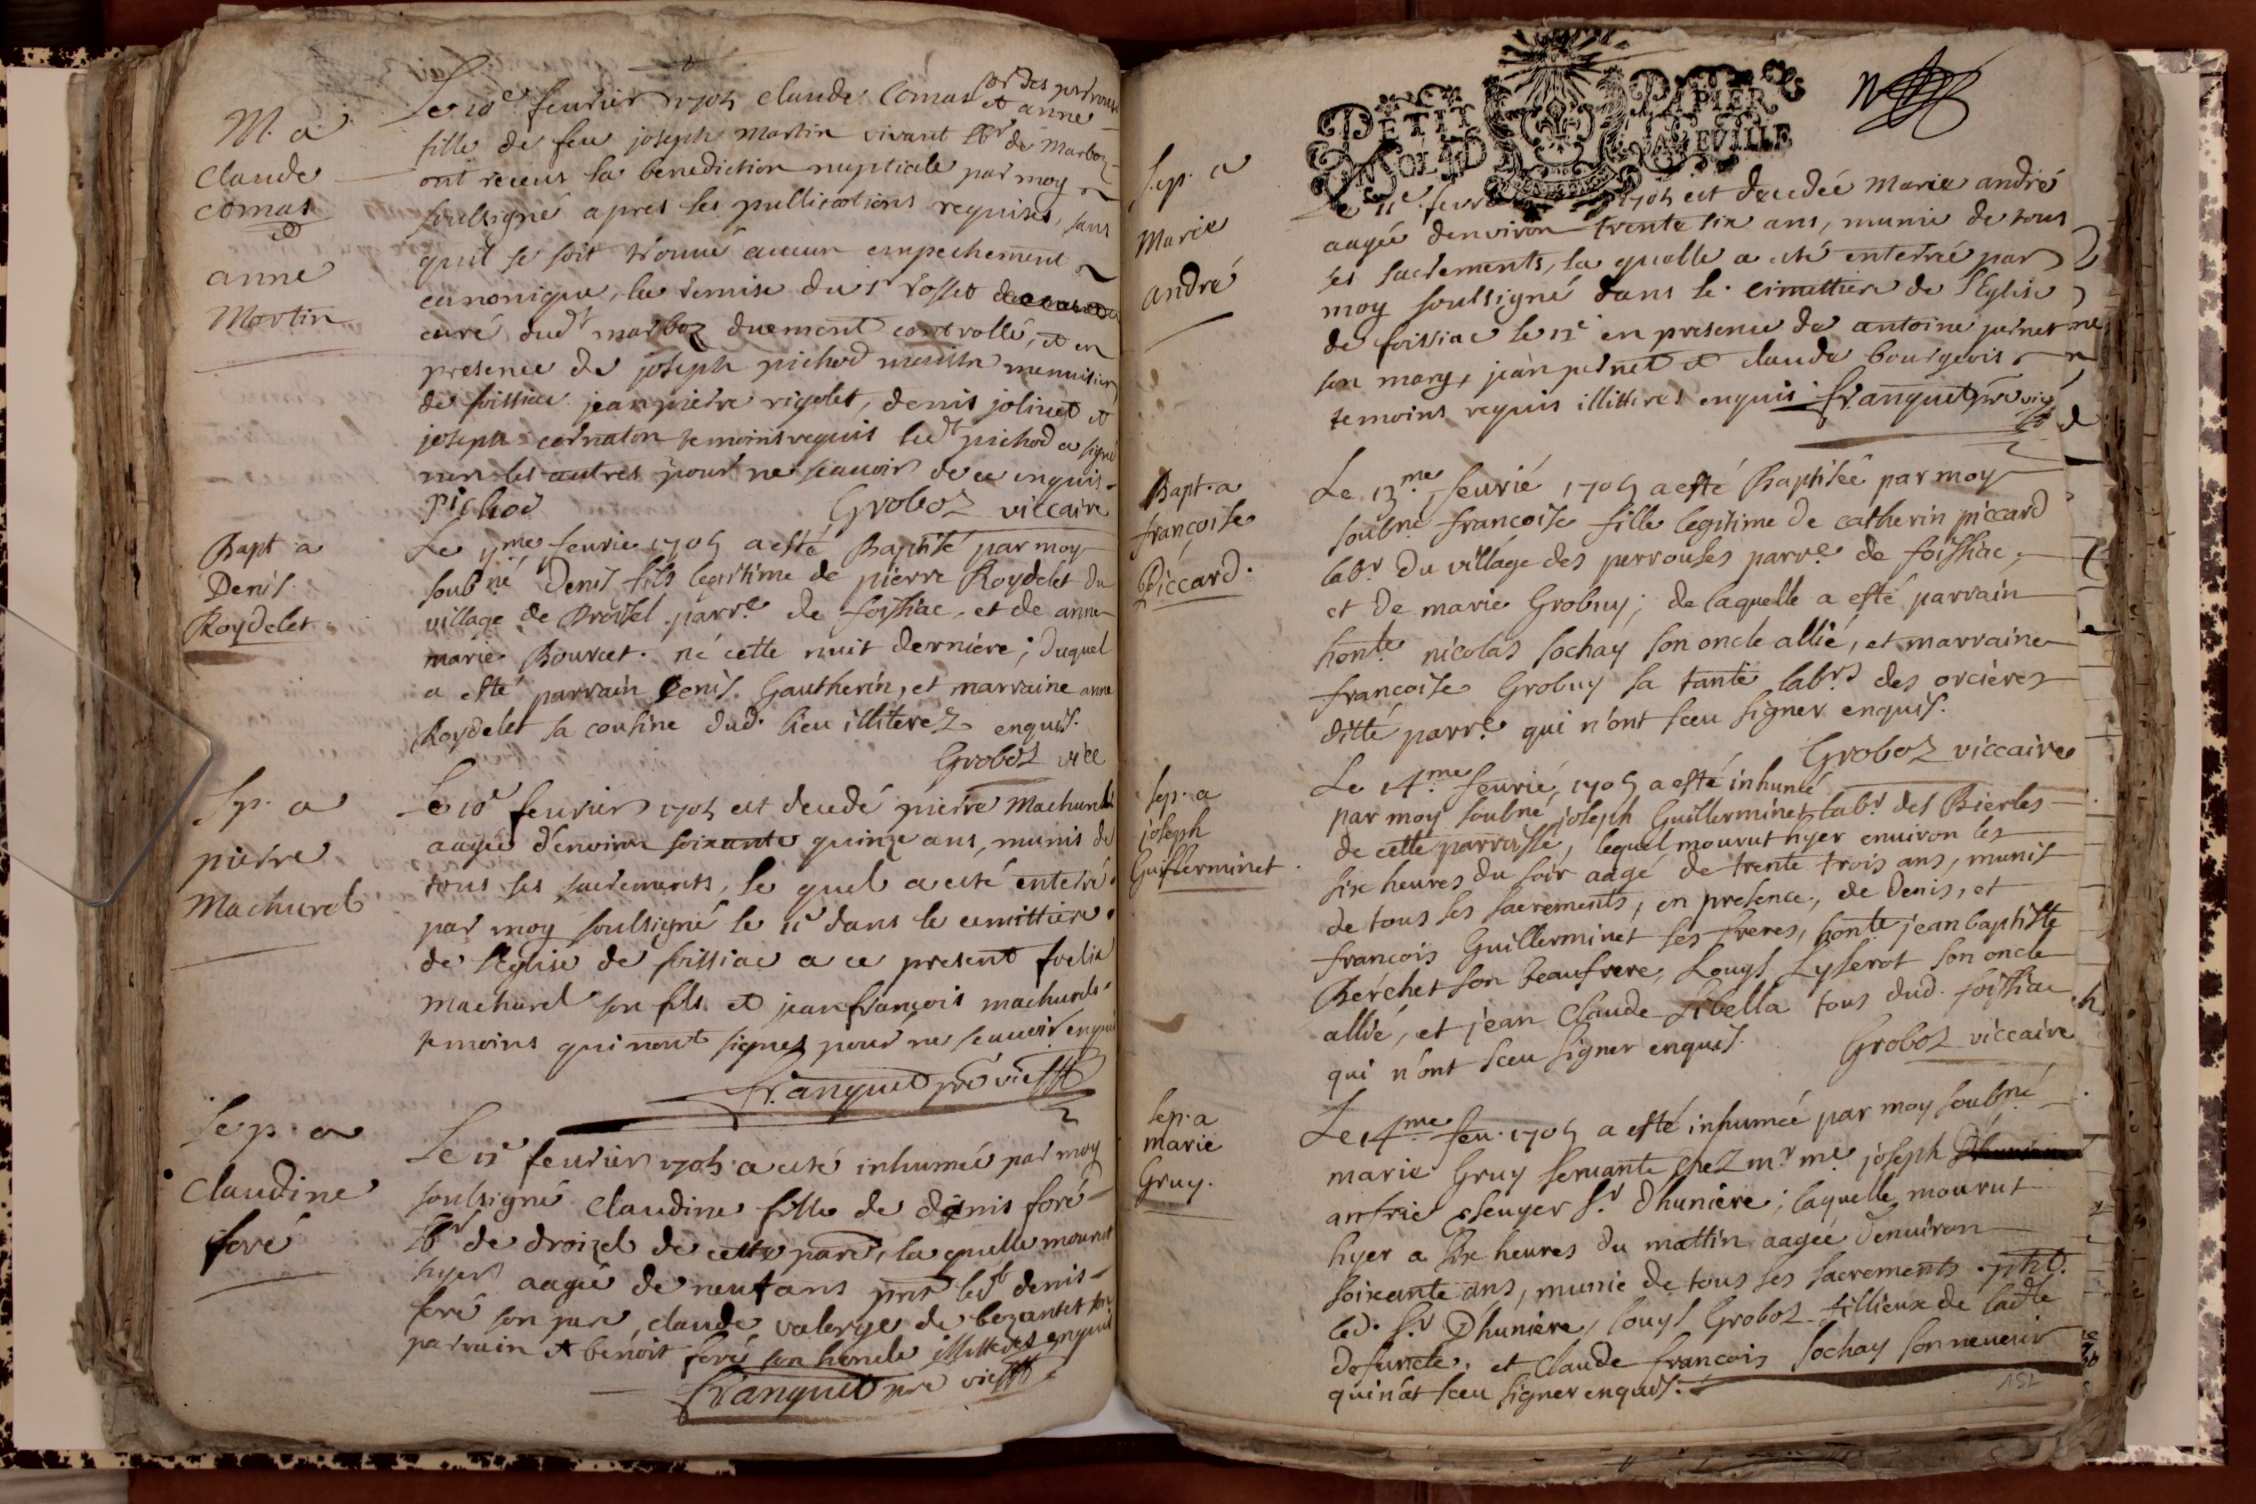 M. a
Claude
Comas
et
anne
Martin
Le 10e feurier 1705 claude Comas lbr des perrouses
et anne
fille de feu joseph Martin vivant lbr de Marboz
ont receus la benediction nuptiale par moy
soulsigné apres les pullications requises, sans
quil se soit trouué aucun empechement
canonique, la remise du sr rosset
curé dudt marboz duement controllé, et en
presence de joseph pichod menuisier
de foissiac jeanpierre rigolet, denis jolivet et
joseph cornaton temoins requis ledt pichod a signé
non les autres pour ne scauoir de ce enquis.
Pichod Groboz viccaire
Bapt. a
Denis
Roydelet
Le 11me feurie 1705 a esté Baptisé par moy
soubné Denis fils legitime de pierre Roydelet du
village de Droisel parre de foissiac, et de anne
marie Bourcet. né cette nuit derniere; duquel
a esté parrain Denis Gautherin, et marraine anne
Roydelet sa cousine dud. lieu illiterez enquis.
Groboz vicc
Sp. a
pierre
Machurel
Le 10e feurier 1705 est decedé pierre Machurel
aagée d'enviren soixante quinze ans, munis de
tous ses sacrements, le quel a esté enterré
par moy soulsigné le 11e dans le cemittiere
de l'Eglise de foissiac a ce present foelix
machurel son fils et jeanfrançois machurel
temoins qui nont signez pour ne scauoir enquis
franquet pre vic
Sep. a
Claudine
foré
Le 12e feurier 1705 a esté inhumée par moy
soulsigné Claudine fille de denis foré
lbr de droizel de cette parr, la quelle mourut
hyer aagée de neuf ans pnt ledt denis
foré son pere, claude valerge de bezantet son
parrain et benoit foré son honcle illitteres enquis
franquet pre vic
PETIT PAPIER
SOL 4D LA FEVILLE
Sep. a
Marie
andré
Le 11e feurier 1705 est decedée Marie andré
aagée denviron trente six ans, munie de tous
ses sacrements, la quelle a esté enterrée par
moy soulsigné dans le cimittiere de l'Eglise
de foissiac le 12e en presence de antoine pernet
son mary, jean pernet et claude bourgeois
temoins requis illittires enquis franquet pre vic
Bapt. a
francoise
Piccard.
Le 13me feurié 1705 a esté Baptisée par moy
soubné francoise fille legitime de catherin piccard
labr du village des perrouses parre de foissiac,
et de marie Grobuy; de laquelle a esté parrain
honte nicolas sochay son oncle allié, et marraine
francoise Grobuy sa tante labrs des orcieres
ditte parre qui n'ont sceu signer enquis.
Groboz viccaire
Sep. a
joseph
Guillerminet
Le 14me feurié 1705 a esté inhumé
par moy soubné joseph Guillerminet labr des Bierles
de cette parroisse, lequel mourut hyer enuiron les
six heures du soir aagé de trente trois ans, munit
de tous ses sacrements, en presence, de Denis, et
francois Guillerminet ses freres, honte jean baptiste
Berchet son beaufrere, Louys Lyserot son oncle
allié, et jean Claude Libella tous dud. foissiac
qui n'ont sceu signer enquis. Groboz viccaire
Sep. a
marie
Gruy.
Le 14me feu. 1705 a esté inhumée par moy soubné
marie Gruy seruante chez mr me joseph
anfrie escuyer sr Dhuniere; laquelle mourut
hyer a six heures du mattin aagée denuiron
soixante ans, munie de tous ses sacrements. pnt.
led. sr Dhuniere, Louys Groboz fillieux de ladte
defuncte, et Claude francois sochay son neueur
qui n'ot sceu signer enquis.
152